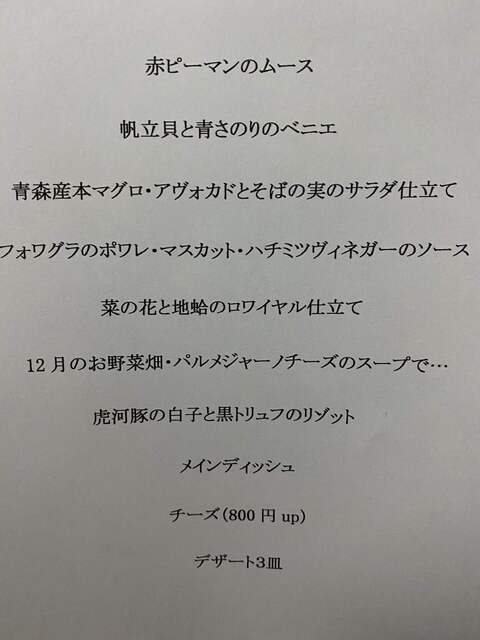 赤ピーマンのムース
帆立貝と青さのりのベニエ
青森産本マグロ・アヴォカドとそばの実のサラダ仕立て
フォワグラのポワレ・マスカット・ハチミツヴィネガーのソース
菜の花と地蛤のロワイヤル仕立て
12月のお野菜畑・パルメジャーノチーズのスープで…
虎河豚の白子と黒トリュフのリゾット
メインディッシュ
チーズ(800円up)
デザート3皿